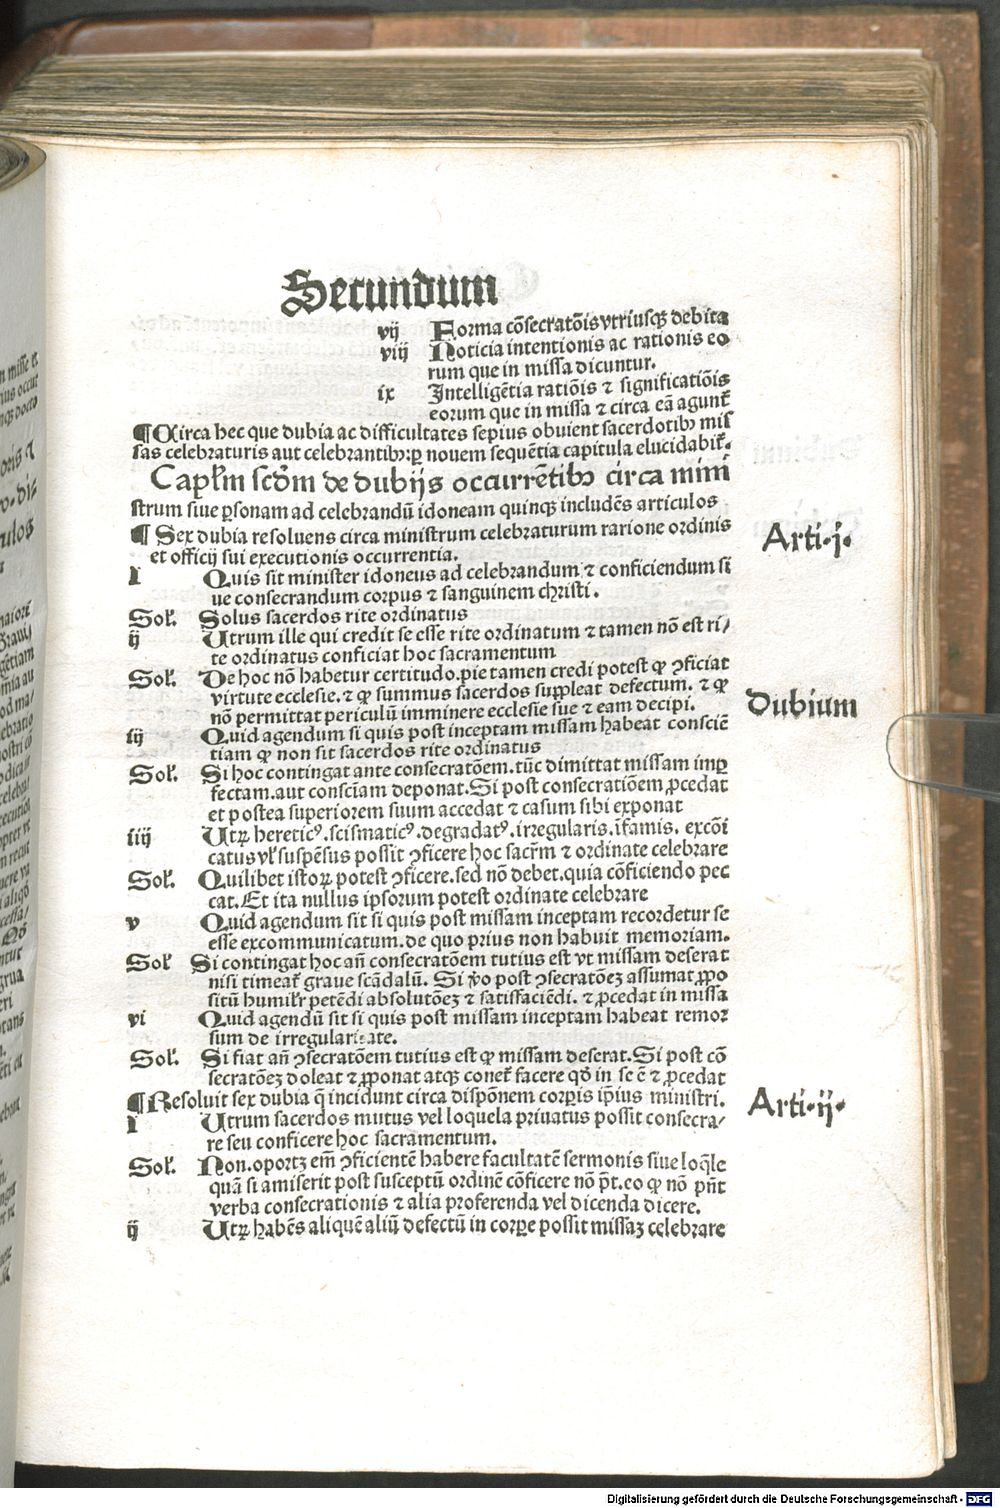 Secundum
vij Forma cōsecratōis vtriusqꝫ debita
viij Noticia intentionis ac rationis eo
rum que in missa dicuntur.
ix Intelligētia ratiōis ⁊ significatiōis
eorum que in missa ⁊ circa eā agunt᷑
¶ Circa hec que dubia ac difficultates sepius obuient sacerdotibꝰ mis
sas celebraturis aut celebrantibꝰ: ꝑ nouem sequētia capitula elucidabit᷑.
Capl̓m scd̓m de dubijs occurrētibꝰ circa mini
strum siue ꝑsonam ad celebrandū idoneam quinqꝫ includēs articulos
¶ Sex dubia resoluens circa ministrum celebraturum ratione ordinis
et officij sui executionis occurrentia.
Arti·j·
I Quis sit minister idoneus ad celebrandum ⁊ conficiendum si
ue consecrandum corpus ⁊ sanguinem christi.
Sol̓. Solus sacerdos rite ordinatus
ij Utrum ille qui credit se esse rite ordinatum ⁊ tamen nō est ri/
te ordinatus conficiat hoc sacramentum
Sol̓. De hoc nō habetur certitudo. pie tamen credi potest ꝙ ꝯficiat
virtute ecclesie. ⁊ ꝙ summus sacerdos suppleat defectum. ⁊ ꝙ
nō permittat periculū imminere ecclesie sue ⁊ eam decipi.
Dubium
iij Quid agendum si quis post inceptam missam habeat consciē
tiam ꝙ non sit sacerdos rite ordinatus
Sol̓. Si hoc contingat ante consecratōem. tūc dimittat missam imꝑ
fectam. aut consciam deponat. Si post consecratiōem ꝓcedat
et postea superiorem suum accedat ⁊ casum sibi exponat
iiij Utꝝ hereticꝰ. scismaticꝰ. degradatꝰ. irregularis. īfamis. excōi
catus vl̓ suspēsus possit ꝯficere hoc sacr̄m ⁊ ordinate celebrare
Sol̓. Quilibet istoꝝ potest ꝯficere. sed nō debet. quia cōficiendo pec
cat. Et ita nullus ipsorum potest ordinate celebrare
v Quid agendum sit si quis post missam inceptam recordetur se
esse excommunicatum. de quo prius non habuit memoriam.
Sol̓ Si contingat hoc an̄ consecratōem tutius est vt missam deserat
nisi timeat᷑ graue scādalū. Si ꝟo post ꝯsecratōeꝫ assumat ꝓpo
sitū humilit᷑ petēdi absolutōeꝫ ⁊ satisfaciēdi. ⁊ ꝓcedat in missa
vi Quid agendū sit si quis post missam inceptam habeat remor
sum de irregularitate.
Sol̓. Si fiat an̄ ꝯsecratōem tutius est ꝙ missam deserat. Si post cō
secratōeꝫ doleat ⁊ ꝓponat atqꝫ conet᷑ facere qd̓ in se ē ⁊ ꝓcedat
¶ Resoluit sex dubia q̄ incidunt circa dispōnem corꝑis ip̄ius ministri.
Arti·ij·
I Utrum sacerdos mutus vel loquela priuatus possit consecra/
re seu conficere hoc sacramentum.
Sol̓. Non. oportꝫ em̄ ꝯficientē habere facultatē sermonis siue loq̄le
quā si amiserit post susceptū ordinē cōficere nō pn̄t. eo ꝙ nō pn̄t
verba consecrationis ⁊ alia proferenda vel dicenda dicere.
ij Utꝝ habēs aliquē aliū defectū in corꝑe possit missaꝫ celebrare
Digitalisierung gefördert durch die Deutsche Forschungsgemeinschaft - DFG